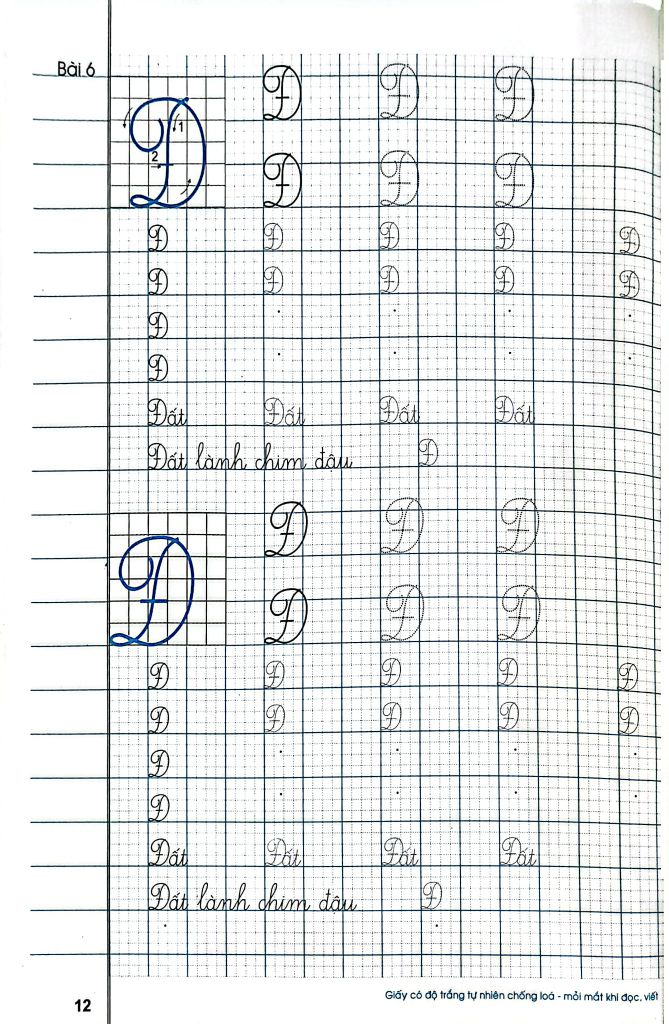 Bài 6
Đ Đ Đ Đ
1
2
Đ Đ Đ
Đ Đ Đ Đ Đ
Đ Đ Đ Đ Đ
Đ
Đ
Đất Đất Đất Đất
Đất lành chim đậu Đ
Đ Đ Đ Đ
Đ Đ Đ
Đ Đ Đ Đ Đ
Đ Đ Đ Đ Đ
Đ
Đ
Đất Đất Đất Đất
Đất lành chim đậu Đ
12
Giấy có độ trắng tự nhiên chống loá - mỏi mắt khi đọc, viết